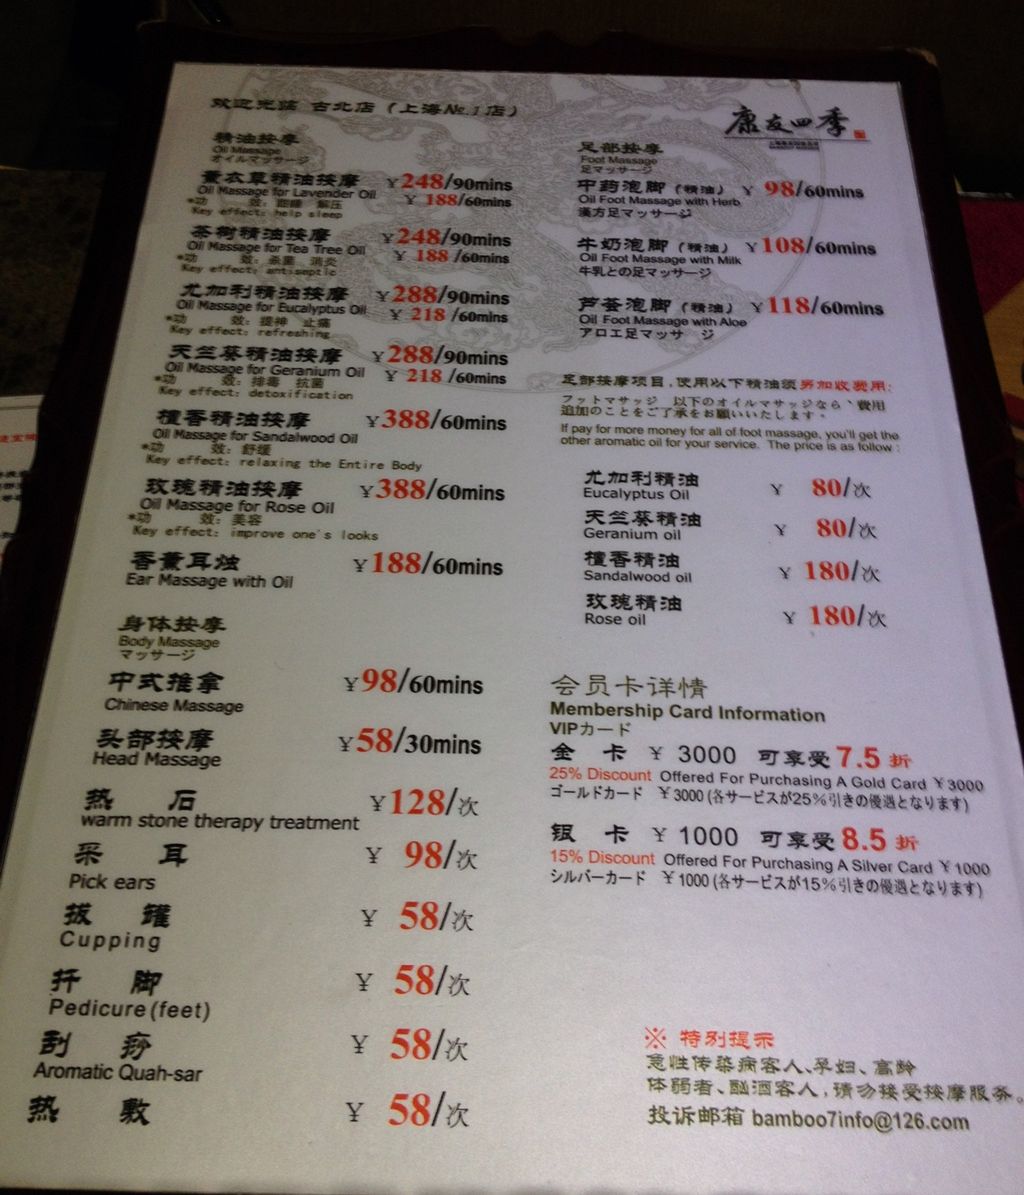 欢迎光临 古北店（上海№.1店）
康友四季
精油按摩
Oil Massage
オイルマッサージ
薰衣草精油按摩 ￥248/90mins
Oil Massage for Lavender Oil ￥188/60mins
*功 效：甜睡 解压
Key effect: help sleep
茶樹精油按摩 ￥248/90mins
Oil Massage for Tea Tree Oil ￥188/60mins
*功 效：杀菌 消炎
Key effect: antiseptic
尤加利精油按摩 ￥288/90mins
Oil Massage for Eucalyptus Oil ￥218/60mins
*功 效：提神 止痛
Key effect: refreshing
天竺葵精油按摩 ￥288/90mins
Oil Massage for Geranium Oil ￥218/60mins
*功 效：排毒 抗菌
Key effect: detoxification
檀香精油按摩 ￥388/60mins
Oil Massage for Sandalwood Oil
*功 效：舒缓
Key effect: relaxing the Entire Body
玫瑰精油按摩 ￥388/60mins
Oil Massage for Rose Oil
*功 效：美容
Key effect: improve one's looks
香薰耳烛 ￥188/60mins
Ear Massage with Oil
身体按摩
Body Massage
マッサージ
中式推拿 ￥98/60mins
Chinese Massage
头部按摩 ￥58/30mins
Head Massage
热 石 ￥128/次
warm stone therapy treatment
采 耳 ￥98/次
Pick ears
拔 罐 ￥58/次
Cupping
扦 脚 ￥58/次
Pedicure(feet)
刮 痧 ￥58/次
Aromatic Quah-sar
热 敷 ￥58/次
足部按摩
Foot Massage
足マッサージ
中药泡脚（精油）￥98/60mins
Oil Foot Massage with Herb
漢方足マッサージ
牛奶泡脚（精油）￥108/60mins
Oil Foot Massage with Milk
牛乳との足マッサージ
芦荟泡脚（精油）￥118/60mins
Oil Foot Massage with Aloe
アロエ足マッサ ージ
足部按摩项目，使用以下精油须另加收费用：
フットマサッジ 以下のオイルマサッジなら、費用
追加のことをご了承をお願いいたします。
If pay for more money for all of foot massage, you'll get the
other aromatic oil for your service. The price is as follow :
尤加利精油 ￥80/次
Eucalyptus Oil
天竺葵精油 ￥80/次
Geranium oil
檀香精油 ￥180/次
Sandalwood oil
玫瑰精油 ￥180/次
Rose oil
会员卡详情
Membership Card Information
VIPカード
金 卡 ￥3000 可享受7.5折
25% Discount Offered For Purchasing A Gold Card ￥3000
ゴールドカード ￥3000(各サービスが25%引きの優遇となります)
银 卡 ￥1000 可享受8.5折
15% Discount Offered For Purchasing A Silver Card ￥1000
シルバーカード ￥1000(各サービスが15%引きの優遇となります)
※ 特别提示
急性传染病客人、孕妇、高龄
体弱者、酗酒客人，请勿接受按摩服务。
投诉邮箱 bamboo7info@126.com